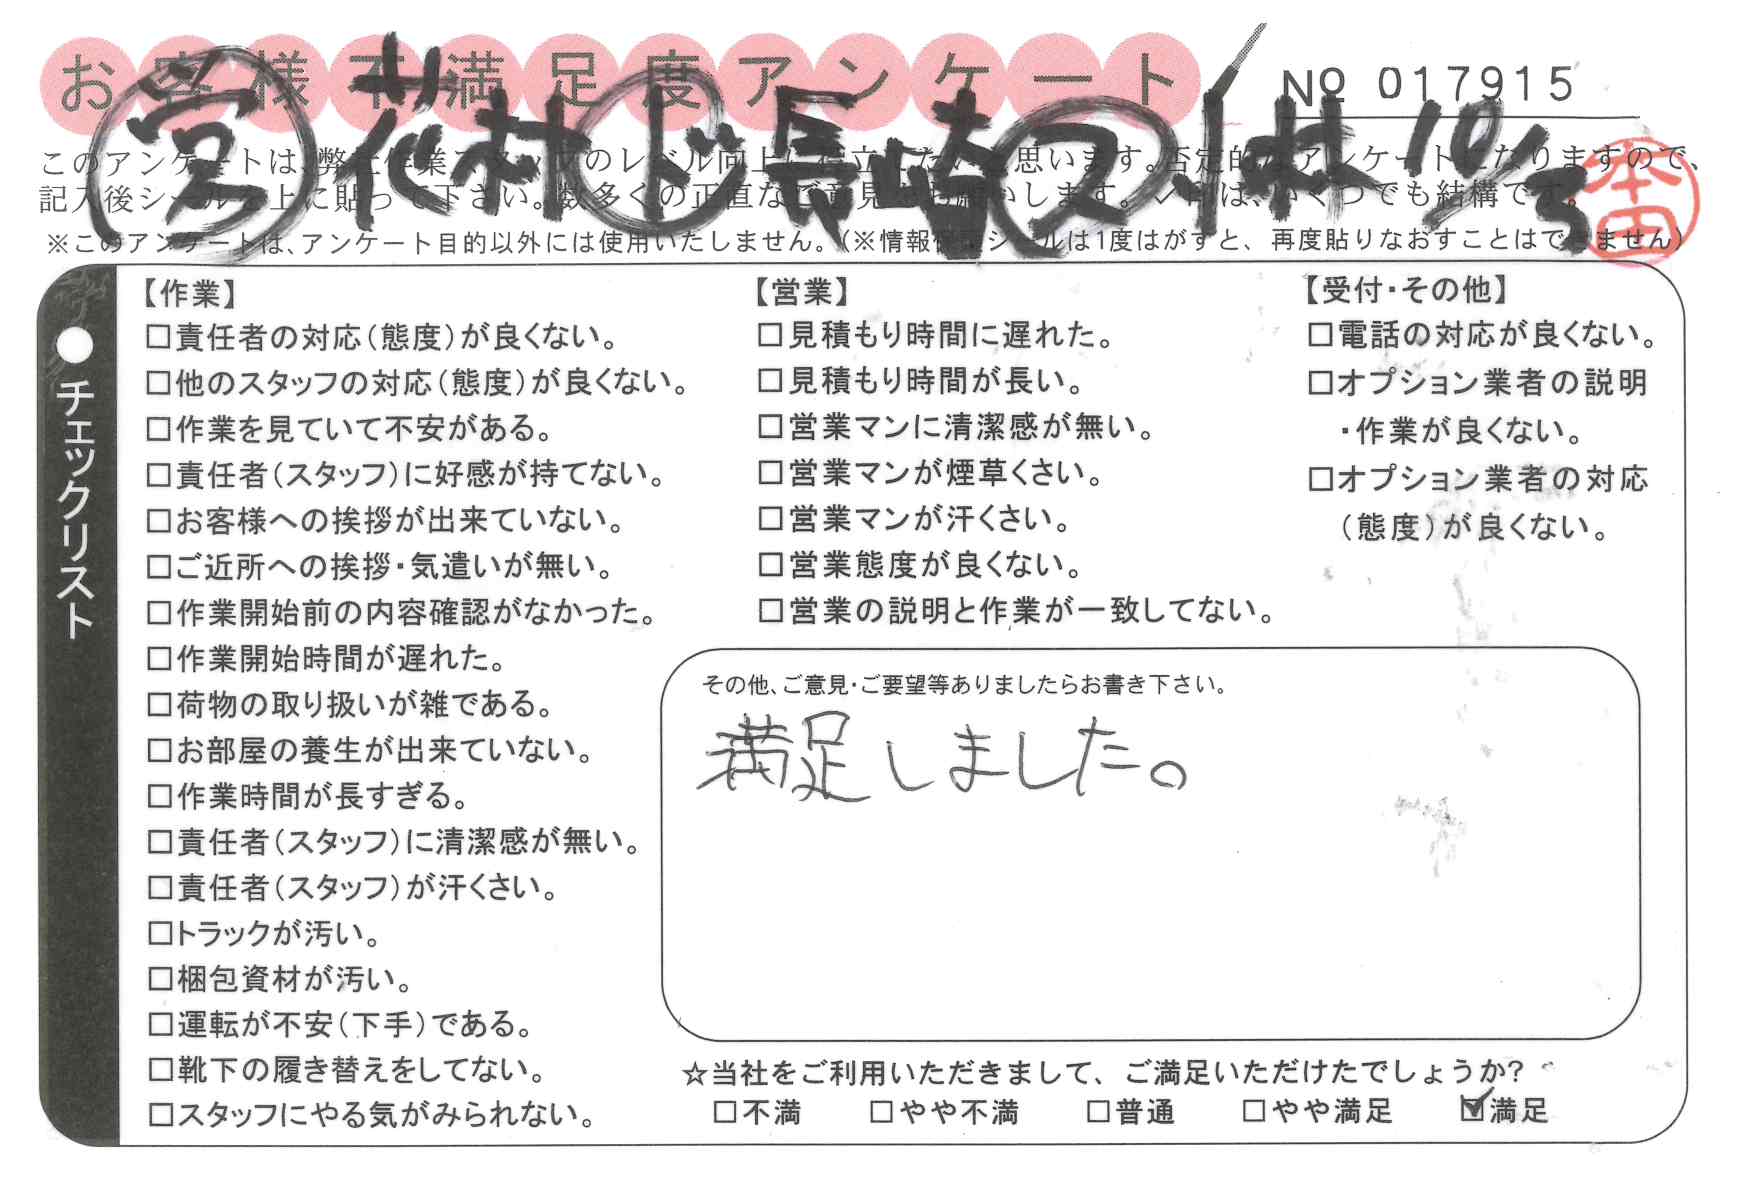 お客様不満足度アンケート
NO 017915
営 花村 ド 長崎 ス 小林 10/3
本田
このアンケートは、弊社作業スタッフのレベル向上に役立てたいと思います。否定的なアンケートになりますので、
記入後シールを上に貼って下さい。数多くの正直なご意見をお願いします。✓印は、いくつでも結構です。
※このアンケートは、アンケート目的以外には使用いたしません。(※情報保護シールは1度はがすと、再度貼りなおすことはできません)
●チェックリスト
【作業】
□責任者の対応(態度)が良くない。
□他のスタッフの対応(態度)が良くない。
□作業を見ていて不安がある。
□責任者(スタッフ)に好感が持てない。
□お客様への挨拶が出来ていない。
□ご近所への挨拶・気遣いが無い。
□作業開始前の内容確認がなかった。
□作業開始時間が遅れた。
□荷物の取り扱いが雑である。
□お部屋の養生が出来ていない。
□作業時間が長すぎる。
□責任者(スタッフ)に清潔感が無い。
□責任者(スタッフ)が汗くさい。
□トラックが汚い。
□梱包資材が汚い。
□運転が不安(下手)である。
□靴下の履き替えをしてない。
□スタッフにやる気がみられない。
【営業】
□見積もり時間に遅れた。
□見積もり時間が長い。
□営業マンに清潔感が無い。
□営業マンが煙草くさい。
□営業マンが汗くさい。
□営業態度が良くない。
□営業の説明と作業が一致してない。
【受付・その他】
□電話の対応が良くない。
□オプション業者の説明
・作業が良くない。
□オプション業者の対応
(態度)が良くない。
その他、ご意見・ご要望等ありましたらお書き下さい。
満足しました。
☆当社をご利用いただきまして、ご満足いただけたでしょうか?
□不満 □やや不満 □普通 □やや満足 ☑満足